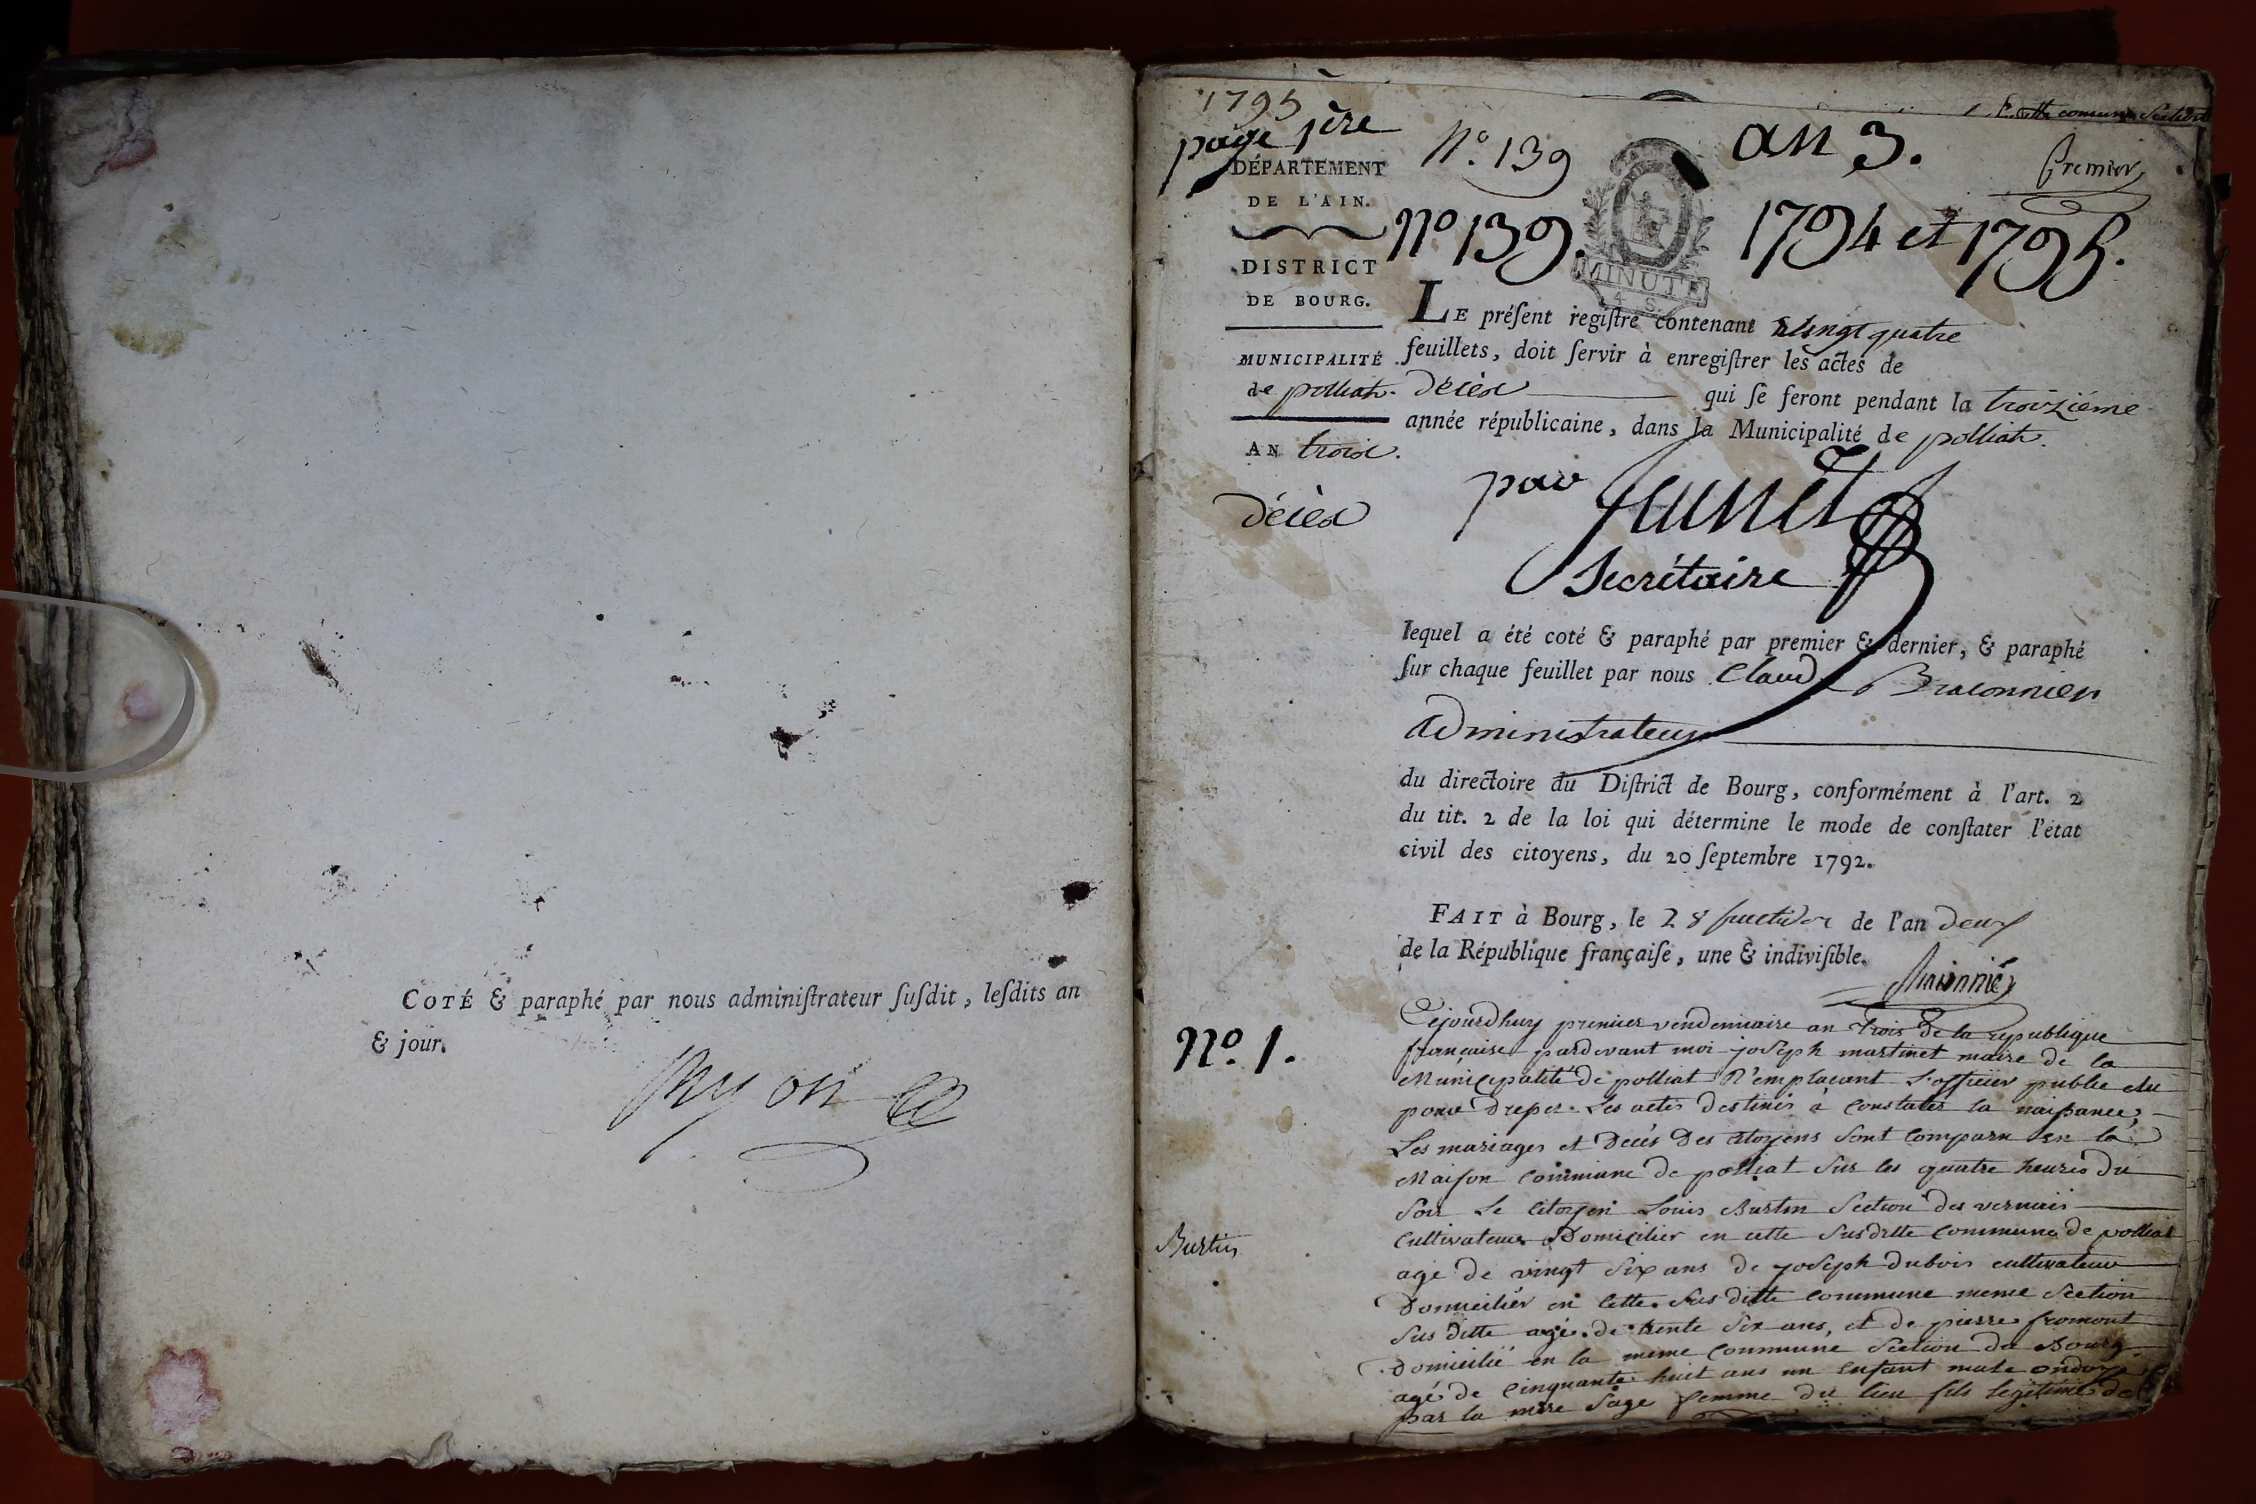 COTÉ & paraphé par nous adminiſtrateur ſuſdit, leſdits an
& jour.
1795
page 1ère
DÉPARTEMENT
DE L'AIN.
DISTRICT
DE BOURG.
MUNICIPALITÉ
de polliat.
AN trois.
décès
N.º 139
an 3.
Premier
Nº 139.
1794 et 1795.
MINUTE
4 S.
LE préſent regiſtre contenant vingt quatre
feuillets, doit ſervir à enregiſtrer les actes de
décès qui ſe feront pendant la troizième
année républicaine, dans la Municipalité de polliat.
par
Secrétaire
lequel a été coté & paraphé par premier & dernier, & paraphé
ſur chaque feuillet par nous Claude Braconnier
administrateur
du directoire du Diſtrict de Bourg, conformément à l'art. 2
du tit. 2 de la loi qui détermine le mode de conſtater l'état
civil des citoyens, du 20 ſeptembre 1792.
FAIT à Bourg, le 28 fructidor de l'an deux
de la République françaiſe, une & indiviſible.
Nº. 1.
Cejourdhuy premier vendemiaire an trois de la republique
française pardevant moi joseph martinet maire de la
Municipalité de polliat R'emplacant L'officier public elu
pour dreser Les actes destinés à Constater la naissance,
Les mariages et Décés Des citoyens Sont Comparu en la
Maison Commune de polliat Sur les quatre heures du
Soir Le Citoyen Louis Burtin Section des vernais
Burtin
Cultivateur Domicilier en cette Susditte Commune de polliat
agé de vingt Six ans de joseph dubois cultivateur
Domicilier en Cette Sus ditte commune meme Section
Sus ditte agé de trente Six ans, et de pierre fromont
Domicilié en la meme Commune Section du Bourg
agé de Cinquante huit ans un enfant male ondoyé
par la mere Sage femme du lieu fils legitime de